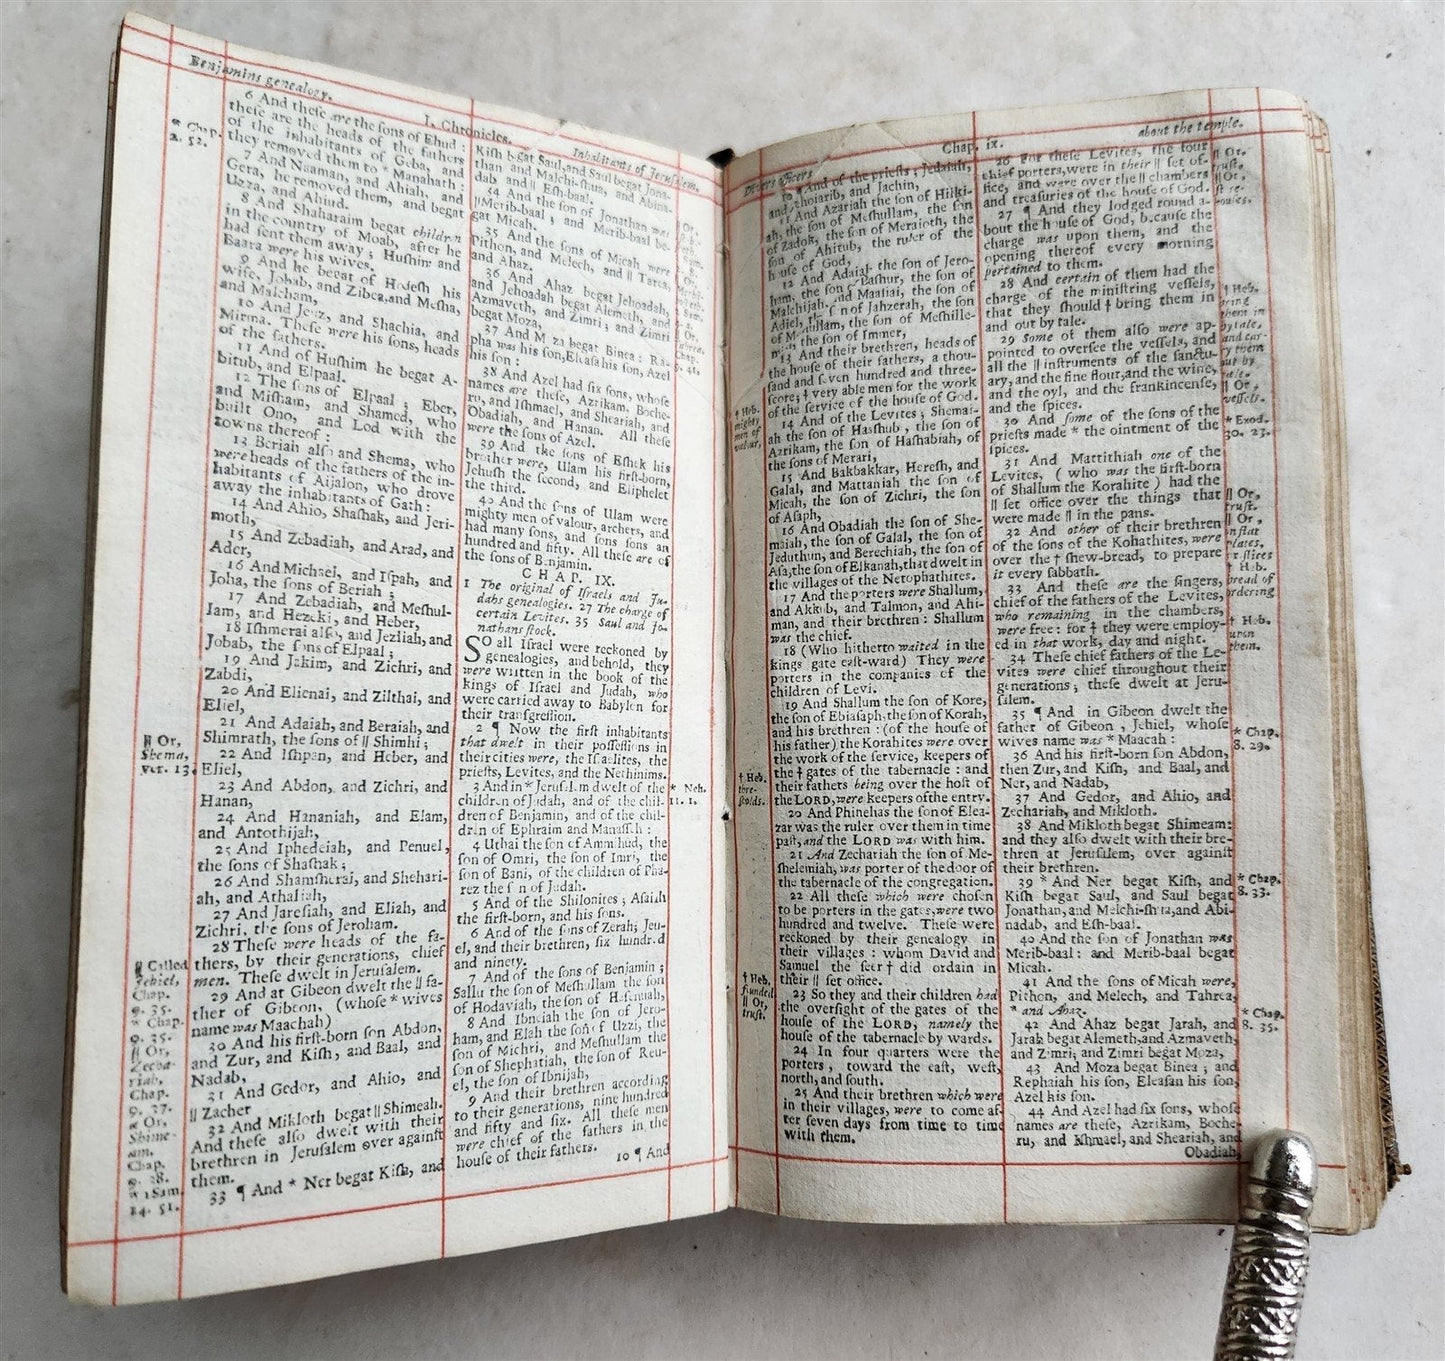 Benjamins genealogy.
I. Chronicles.
Inhabitants of Jerusalem.
* Chap.
2. 52.
6 And these are the sons of Ehud :
these are the heads of the fathers
of the inhabitants of Geba, and
they removed them to * Manahath :
7 And Naaman, and Ahiah, and
Gera, he removed them, and begat
Uzza, and Ahiud.
8 And Shaharaim begat children
in the country of Moab, after he
had sent them away ; Hushim and
Baara were his wives.
9 And he begat of Hodesh his
wife, Jobab, and Zibea, and Mesha,
and Malcham,
10 And Jeuz, and Shachia, and
Mirma. These were his sons, heads
of the fathers.
11 And of Hushim he begat A-
bitub, and Elpaal.
12 The sons of Elpaal ; Eber,
and Misham, and Shamed, who
built Ono, and Lod with the
towns thereof :
13 Beriah also and Shema, who
were heads of the fathers of the in-
habitants of Aijalon, who drove
away the inhabitants of Gath :
14 And Ahio, Shashak, and Jeri-
moth,
15 And Zebadiah, and Arad, and
Ader,
16 And Michael, and Ispah, and
Joha, the sons of Beriah ;
17 And Zebadiah, and Meshul-
lam, and Hezeki, and Heber,
18 Ishmerai also, and Jezliah, and
Jobab, the sons of Elpaal ;
19 And Jakim, and Zichri, and
Zabdi,
20 And Elienai, and Zilthai, and
Eliel,
21 And Adaiah, and Beraiah, and
Shimrath, the sons of || Shimhi ;
22 And Ishpan, and Heber, and
Eliel,
23 And Abdon, and Zichri, and
Hanan,
24 And Hananiah, and Elam,
and Antothijah,
25 And Iphedeiah, and Penuel,
the sons of Shashak ;
26 And Shamsherai, and Shehari-
ah, and Athaliah,
27 And Jaresiah, and Eliah, and
Zichri, the sons of Jeroham.
28 These were heads of the fa-
thers, by their generations, chief
men. These dwelt in Jerusalem.
29 And at Gibeon dwelt the || fa-
ther of Gibeon, (whose * wives
name was Maachah)
30 And his first-born son Abdon,
and Zur, and Kish, and Baal, and
Nadab,
31 And Gedor, and Ahio, and
|| Zacher
32 And Mikloth begat || Shimeah.
And these also dwelt with their
brethren in Jerusalem over against
them.
33 ¶ And * Ner begat Kish, and
|| Or,
Shema,
ver. 13.
|| Called
Jehiel,
Chap.
9. 35.
* Chap.
9. 35.
|| Or,
Zecha-
riah,
Chap.
9. 37.
Or,
Shime-
am,
Chap.
9. 38.
* 1 Sam.
14. 51.
Kish begat Saul, and Saul begat Jona-
than and Malchi-shua, and Abina-
dab and || Esh-baal.
34 And the son of Jonathan was
|| Merib-baal ; and Merib-baal be-
gat Micah.
35 And the sons of Micah were
Pithon, and Melech, and || Tarea,
and Ahaz.
36 And Ahaz begat Jehoadah,
and Jehoadah begat Alemeth, and
Azmaveth, and Zimri ; and Zimri
begat Moza,
37 And Moza begat Binea : Ra-
pha was his son, Eleasa his son, Azel
his son :
38 And Azel had six sons, whose
names are these, Azrikam, Boche-
ru, and Ishmael, and Sheariah, and
Obadiah, and Hanan. All these
were the sons of Azel.
39 And the sons of Eshek his
brother were, Ulam his first-born,
Jehush the second, and Eliphelet
the third.
40 And the sons of Ulam were
mighty men of valour, archers, and
had many sons, and sons sons an
hundred and fifty. All these are of
the sons of Benjamin.
CHAP. IX.
1 The original of Israels and Ju-
dahs genealogies. 27 The charge of
certain Levites. 35 Saul and Jo-
nathans stock.
So all Israel were reckoned by
genealogies, and behold, they
were written in the book of the
kings of Israel and Judah, who
were carried away to Babylon for
their transgression.
2 ¶ Now the first inhabitants
that dwelt in their possessions in
their cities were, the Israelites, the
priests, Levites, and the Nethinims.
3 And in * Jerusalem dwelt of the
children of Judah, and of the chil-
dren of Benjamin, and of the chil-
dren of Ephraim and Manasseh :
4 Uthai the son of Ammihud, the
son of Omri, the son of Imri, the
son of Bani, of the children of Pha-
rez the son of Judah.
5 And of the Shilonites ; Asaiah
the first-born, and his sons.
6 And of the sons of Zerah ; Jeu-
el, and their brethren, six hundred
and ninety.
And of the sons of Benjamin ;
Sallu the son of Meshullam the son
of Hodaviah, the son of Hasenuah,
8 And Ibneiah the son of Jero-
ham, and Elah the son of Uzzi, the
son of Michri, and Meshullam the
son of Shephatiah, the son of Reu-
el, the son of Ibnijah,
9 And their brethren according
to their generations, nine hundred
and fifty and six. All these men
were chief of the fathers in the
house of their fathers.
10 ¶ And
* Neh.
11. 1.
Divers officers
Chap. ix.
about the temple.
10 ¶ And of the priests ; Jedaiah,
and Jehoiarib, and Jachin,
11 And Azariah the son of Hilki-
ah, the son of Meshullam, the son
of Zadok, the son of Meraioth, the
son of Ahitub, the ruler of the
house of God,
12 And Adaiah the son of Jero-
ham, the son of Pashur, the son of
Malchijah, and Maasiai, the son of
Adiel, the son of Jahzerah, the son
of Meshullam, the son of Meshille-
mith, the son of Immer,
13 And their brethren, heads of
the house of their fathers, a thou-
sand and seven hundred and three-
score ; † very able men for the work
of the service of the house of God.
14 And of the Levites ; Shemai-
ah the son of Hasshub, the son of
Azrikam, the son of Hashabiah, of
the sons of Merari,
15 And Bakbakkar, Heresh, and
Galal, and Mattaniah the son of
Micah, the son of Zichri, the son
of Asaph,
16 And Obadiah the son of She-
maiah, the son of Galal, the son of
Jeduthun, and Berechiah, the son of
Asa, the son of Elkanah, that dwelt in
the villages of the Netophathites.
17 And the porters were Shallum,
and Akkub, and Talmon, and Ahi-
man, and their brethren : Shallum
was the chief.
18 (Who hitherto waited in the
kings gate east-ward) They were
porters in the companies of the
children of Levi.
19 And Shallum the son of Kore,
the son of Ebiasaph, the son of Korah,
and his brethren : (of the house of
his father) the Korahites were over
the work of the service, keepers of
the † gates of the tabernacle : and
their fathers being over the host of
the LORD, were keepers of the entry.
20 And Phinehas the son of Elea-
zar was the ruler over them in time
past, and the LORD was with him.
21 And Zechariah the son of Me-
shelemiah, was porter of the door of
the tabernacle of the congregation.
22 All these which were chosen
to be porters in the gates, were two
hundred and twelve. These were
reckoned by their genealogy in
their villages : whom David and
Samuel the seer † did ordain in
their || set office.
23 So they and their children had
the oversight of the gates of the
house of the LORD, namely the
house of the tabernacle by wards.
24 In four quarters were the
porters, toward the east, west,
north, and south.
25 And their brethren which were
in their villages, were to come af-
ter seven days from time to time
with them.
† Heb.
mighty
men of
valour,
† Heb.
thre-
sholds.
† Heb.
founded.
|| Or,
trust.
26 For these Levites, the four
chief porters, were in their || set of-
fice, and were over the || chambers
and treasuries of the house of God.
27 ¶ And they lodged round a-
bout the house of God, because the
charge was upon them, and the
opening thereof every morning
pertained to them.
28 And certain of them had the
charge of the ministring vessels,
that they should † bring them in
and out by tale.
29 Some of them also were ap-
pointed to oversee the vessels, and
all the || instruments of the sanctu-
ary, and the fine flour, and the wine,
and the oyl, and the frankincense,
and the spices.
30 And some of the sons of the
priests made * the ointment of the
spices.
31 And Mattithiah one of the
Levites, ( who was the first-born
of Shallum the Korahite ) had the
|| set office over the things that
were made || in the pans.
32 And other of their brethren
of the sons of the Kohathites, were
over the † shew-bread, to prepare
it every sabbath.
33 And these are the singers,
chief of the fathers of the Levites,
who remaining in the chambers,
were free : for † they were employ-
ed in that work, day and night.
34 These chief fathers of the Le-
vites were chief throughout their
generations ; these dwelt at Jeru-
salem.
35 ¶ And in Gibeon dwelt the
father of Gibeon, Jehiel, whose
wives name was * Maacah :
36 And his first-born son Abdon,
then Zur, and Kish, and Baal, and
Ner, and Nadab,
37 And Gedor, and Ahio, and
Zechariah, and Mikloth.
38 And Mikloth begat Shimeam :
and they also dwelt with their bre-
thren at Jerusalem, over against
their brethren.
39 * And Ner begat Kish, and
Kish begat Saul, and Saul begat
Jonathan, and Melchi-shua, and Abi-
nadab, and Esh-baal.
40 And the son of Jonathan was
Merib-baal : and Merib-baal begat
Micah.
41 And the sons of Micah were,
Pithon, and Melech, and Tahrea,
* and Ahaz.
42 And Ahaz begat Jarah, and
Jarah begat Alemeth, and Azmaveth,
and Zimri ; and Zimri begat Moza,
43 And Moza begat Binea ; and
Rephaiah his son, Eleasah his son,
Azel his son.
44 And Azel had six sons, whose
names are these, Azrikam, Boche-
ru, and Ishmael, and Sheariah, and
Obadiah,
|| Or,
trust.
|| Or,
† Heb.
bring
them in
by tale,
and car-
ry them
out by
tale.
|| Or,
vessels.
* Exod.
30. 23.
|| Or,
trust.
|| Or,
on flat
plates,
or slices
† Heb.
bread of
ordering
† Heb.
upon
them.
* Chap.
8. 29.
* Chap.
8. 33.
* Chap.
8. 35.